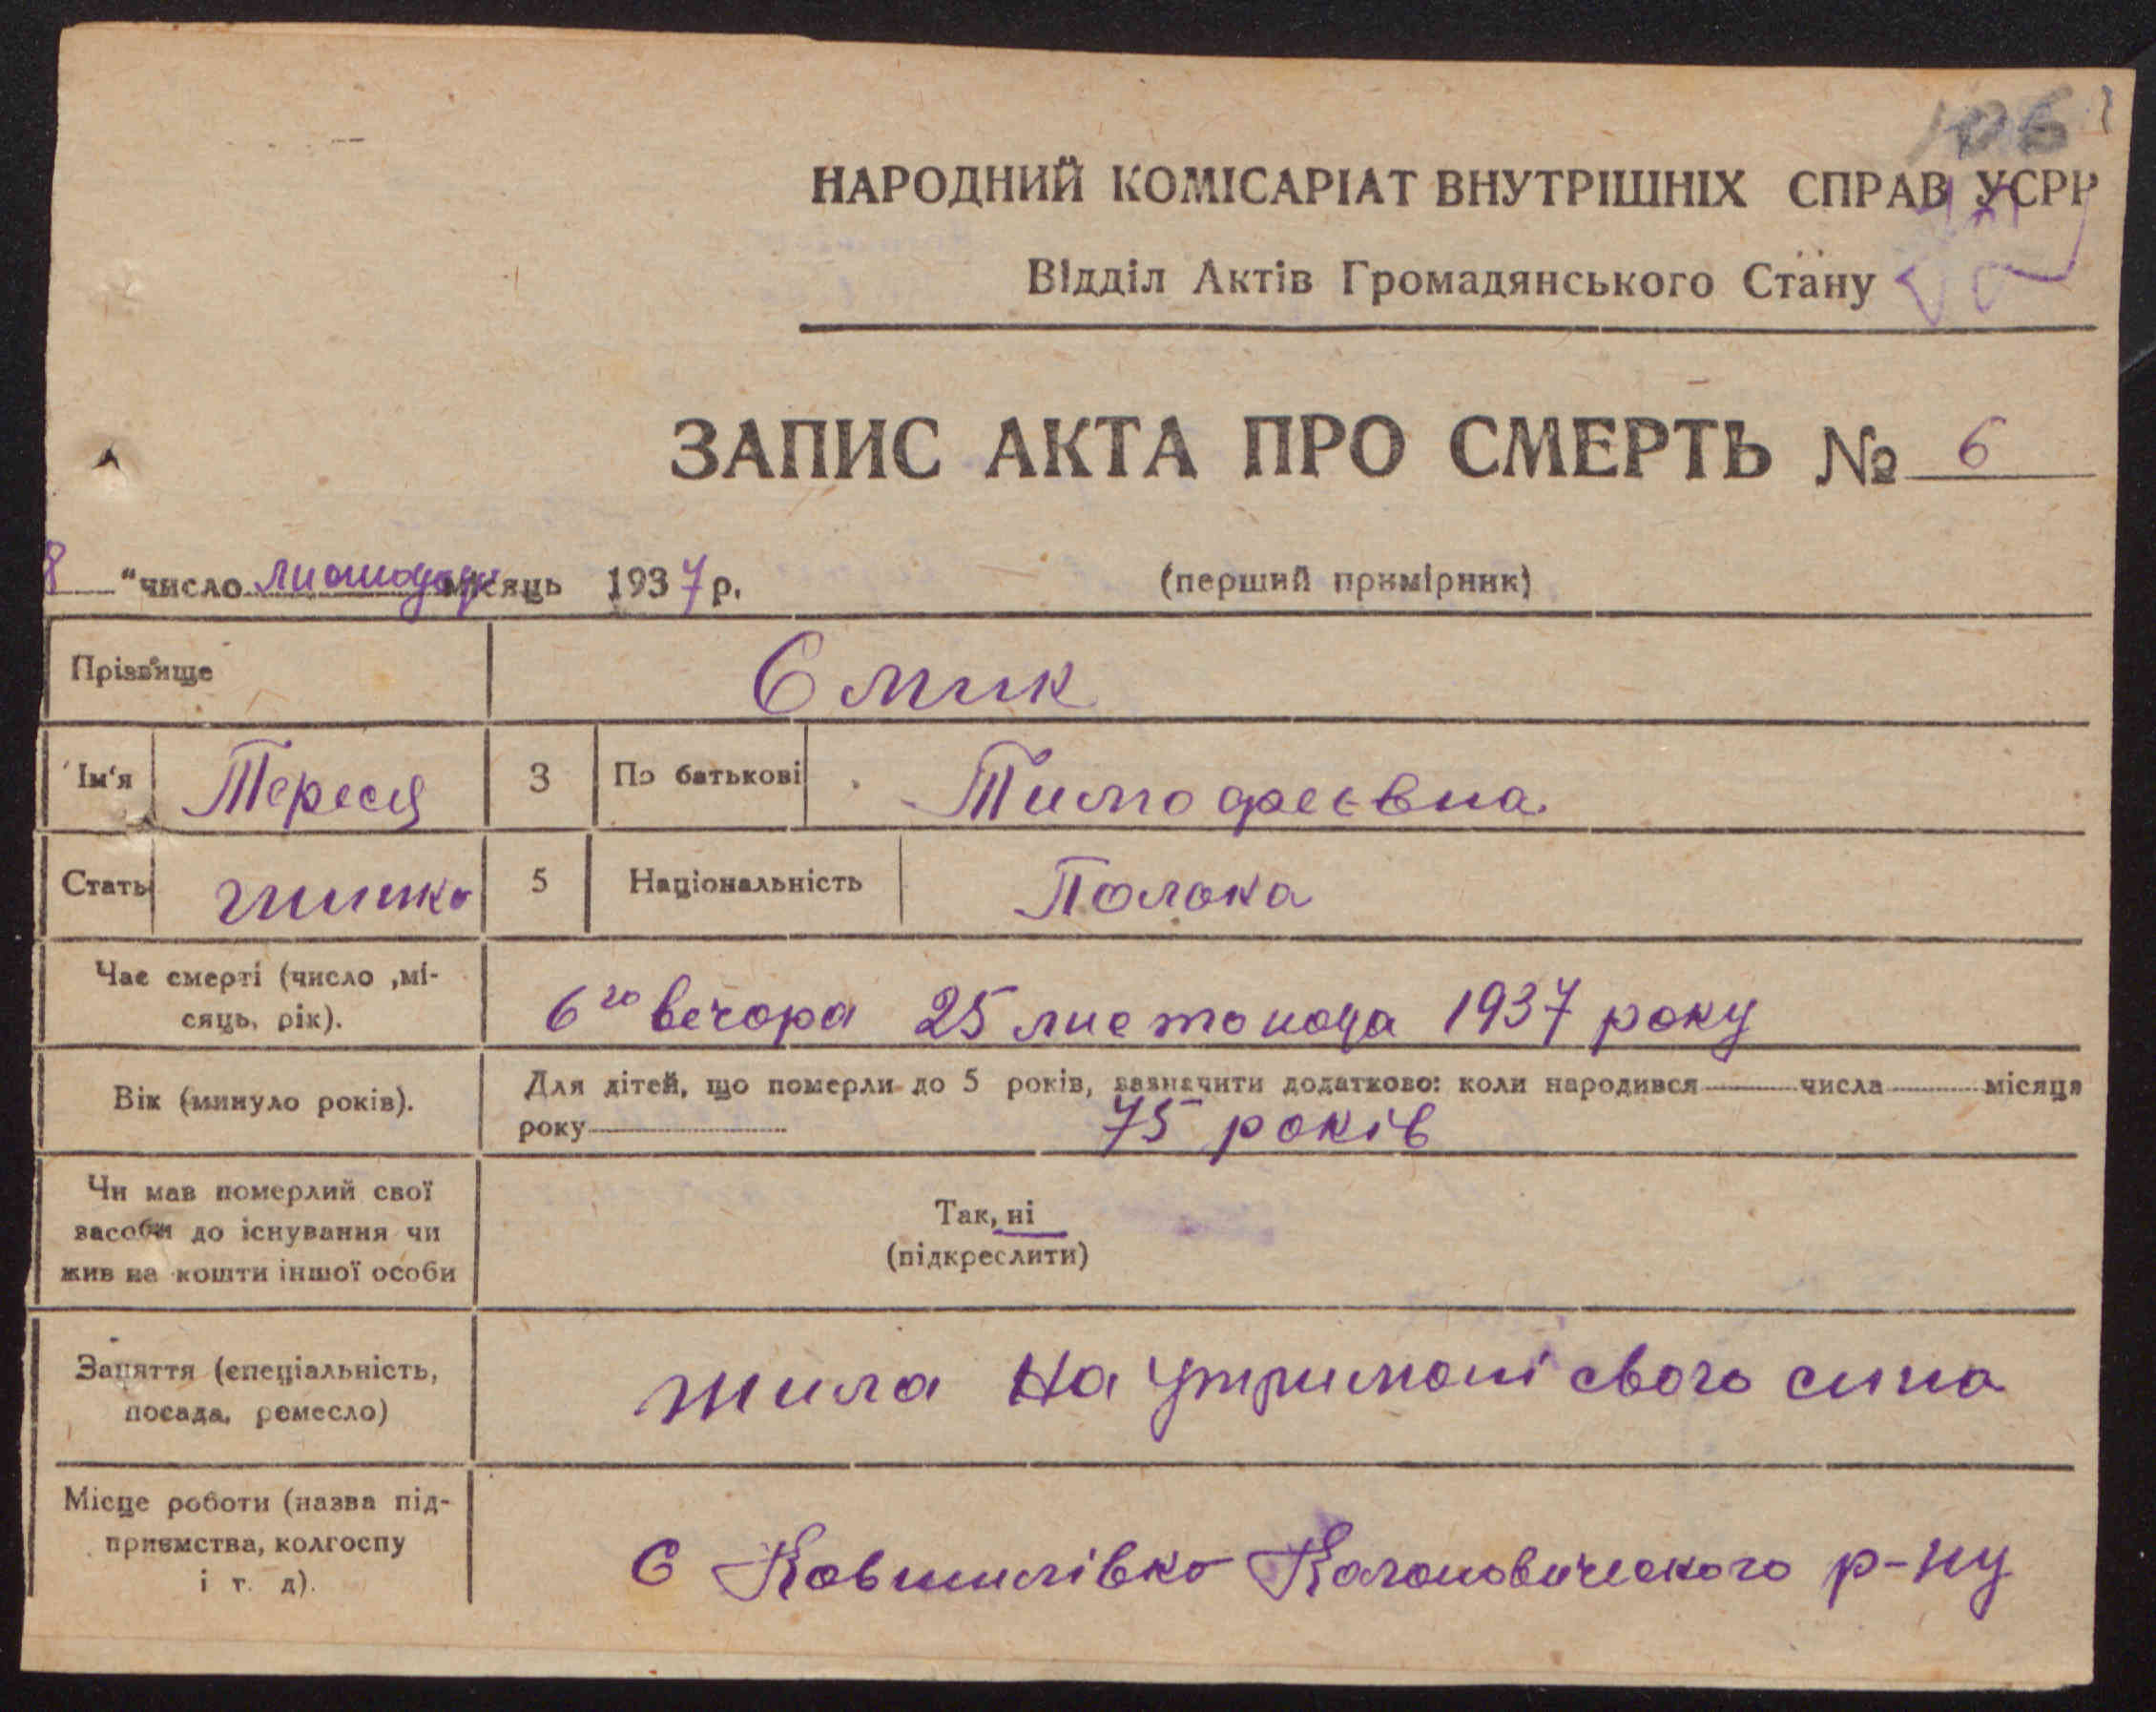 106
НАРОДНИЙ КОМІСАРІАТ ВНУТРІШНІХ СПРАВ УСРР
Відділ Актів Громадянського Стану
ЗАПИС АКТА ПРО СМЕРТЬ № 6
8 "число листопада місяць 1937 р.
(перший примірник)
Прізвище Смик
Ім'я Тереся 3 По батькові Тимофеєвна
Стать жинка 5 Національність Полока
Час смерті (число ,мі-
сяць, рік).
6го вечора 25 листопода 1937 року
Вік (минуло років).
Для дітей, що померли до 5 років, зазначити додатково: коли народився числа місяця
року 75 років
Чи мав померлий свої
засоби до існування чи
жив на кошти іншої особи
Так, ні
(підкреслити)
Заняття (спеціальність,
посада, ремесло)
жила на утримані свого сина
Місце роботи (назва під-
приємства, колгоспу
і т. д).
С р-ну